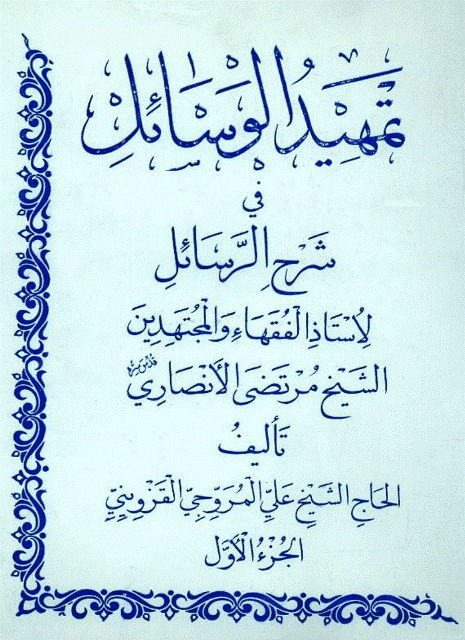 تَمْهِيدُ الْوَسَائِلِ
في
شَرْحِ الرَّسَائِلِ
لِأُسْتَاذِ الْفُقَهَاءِ وَالْمُجْتَهِدِينَ
الشَّيْخِ مُرْتَضَى الْأَنْصَارِي قدس سره
تَأْلِيفُ
الحَاجِ الشَّيْخِ عَلِيِّ الْمُرَوِّجِيِّ الْقَزْوِينِيِّ
الجُزْءُ الْأَوَّلُ